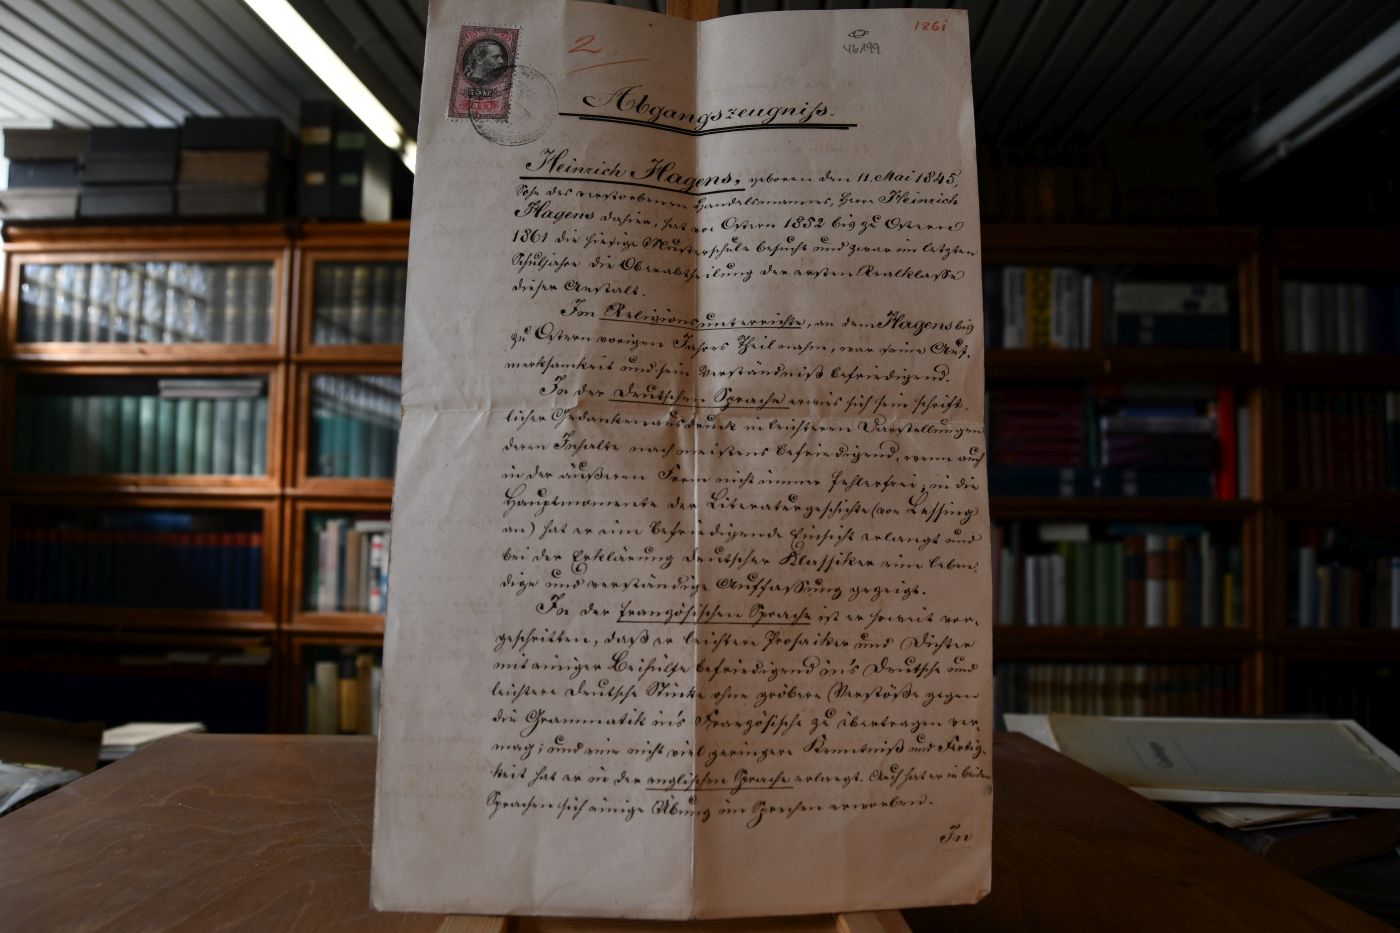 1861
2
V6199
15 Kr
Abgangszeugniß.
Heinrich Hagens, geboren den 11. Mai 1845,
Sohn des verstorbenen Handelsmannes, Herrn Heinrich
Hagens dahier, hat von Ostern 1852 bis zu Ostern
1861 die hiesige Musterschule besucht und zwar im letzten
Schuljahre die Oberabtheilung der ersten Realklasse
dieser Anstalt.
Im Religionsunterrichte, an dem Hagens bis
zu Ostern vorigen Jahres Theil nahm, war seine Auf-
merksamkeit und sein Verständniß befriedigend.
In der Deutschen Sprache erwies sich sein schrift-
licher Gedankenausdruck in leichteren Darstellungen
deren Inhalte nach meistens befriedigend, wenn auch
in der äußeren Form nicht immer fehlerfrei; in die
Hauptmomente der Literaturgeschichte (von Lessing
an) hat er eine befriedigende Einsicht erlangt und
bei der Erklärung deutscher Klassiker eine leben-
dige und verständige Auffassung gezeigt.
In der französischen Sprache ist er soweit vor-
geschritten, daß er leichtere Prosaiker und Dichter
mit einiger Beihülfe befriedigend in's Deutsche und
leichtere Deutsche Stücke ohne gröbere Verstöße gegen
die Grammatik in's Französische zu übertragen ver-
mag; und eine nicht viel geringere Kenntniß und Fertig-
keit hat er in der englischen Sprache erlangt. Auch hat er in beiden
Sprachen sich einige Übung im Sprechen erworben.
In